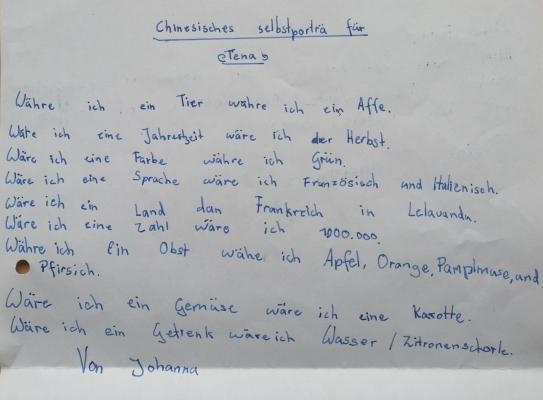 Chinesisches selbstporträ für
Jena
Währe ich ein Tier währe ich ein Affe.
Wäre ich eine Jahreszeit wäre ich der Herbst.
Wäre ich eine Farbe währe ich Grün.
Wäre ich eine Sprache wäre ich Französisch und Italienisch.
Wäre ich ein Land dan Frankreich in Lelavandu.
Wäre ich eine Zahl wäre ich 1000.000.
Währe ich ein Obst wähe ich Apfel, Orange, Pamplmuse, und
Pfirsich.
Wäre ich ein Gemüse wäre ich eine Karotte.
Wäre ich ein Getrenk wäre ich Wasser / Zitronenschorle.
Von Johanna